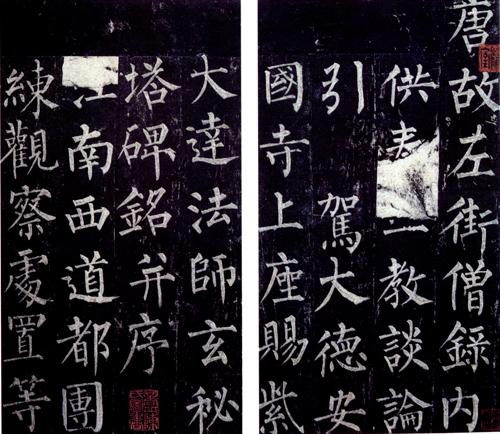 唐故左街僧錄內
供奉三教談論
引 駕大德安
國寺上座賜紫
大達法師玄秘
塔碑銘并序
江南西道都團
練觀察處置等